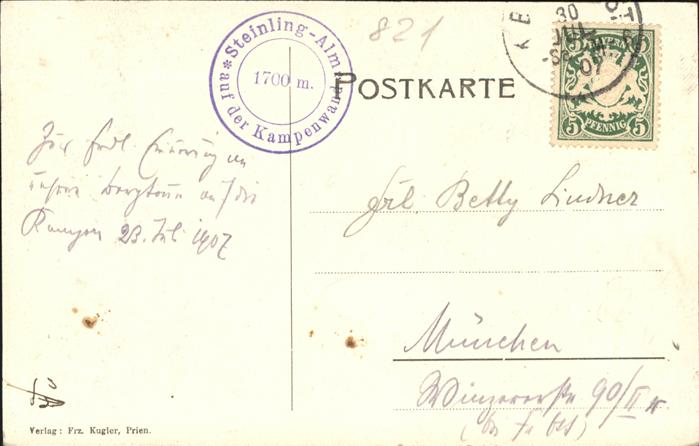 Steinling-Alm
1700 m.
* auf der Kampenwand *
821
30
JUL
07
5 PFENNIG 5
POSTKARTE
Zur frdl. Erinnerung an
unsere Bergtour auf die
Kampen 23. Juli 1907
Frl. Betty Lindner
München
Winzererstr 90/II r
Verlag: Frz. Kugler, Prien.